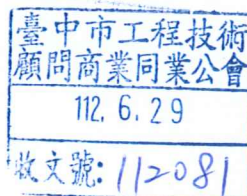 臺中市工程技術
顧問商業同業公會
112. 6. 29
收文號: 112081